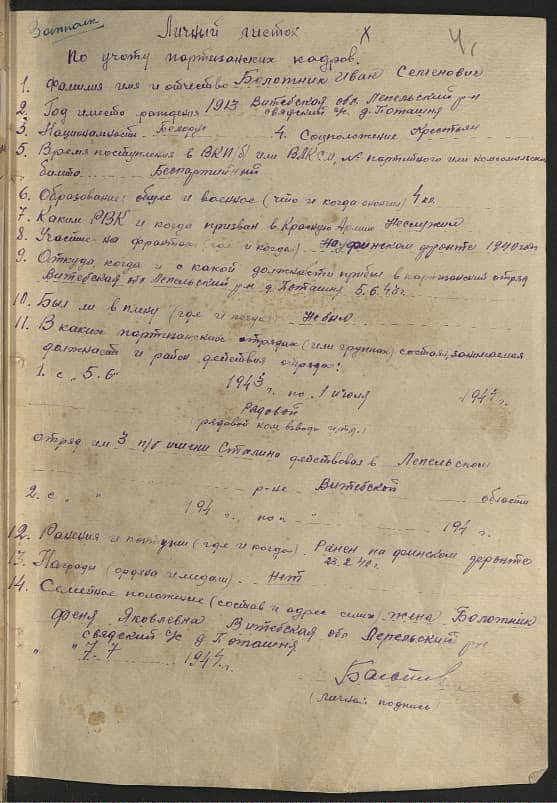 Личный листок
По учету партизанских кадров.
1. Фамилия имя и отчество Болотник Иван Семенович
2. Год и место рождения 1913 Витебская обл. Лепельский р-н
свядский с/с д. Поташня
3. Национальность Белорус 4. Соцположение Крестьян
5. Время поступления в ВКП/б/ или ВЛКСМ, № партийного или комсомольск
билета Беспартийный
6. Образование: общее и военное (что и когда окончил) 4 кл.
7. Каким РВК и когда призван в Красную Армию Неслужил
8. Участие на фронтах (где и когда) На финском фронте 1940 году
9. Откуда, когда и с какой должности прибыл в партизанский отряд
Витебская обл Лепельский р-н д. Поташня 5.6.43г.
10. Был ли в плену (где и когда) Небыл
11. В каких партизанских отрядах (или группах) состоял, занимаемая
должность и район действия отряда:
1. с „ 5.6" 1943 г. по „ 1 июля 194 г.
Рядовой
рядовой ком взвода и т.д.)
отряд им 3 п/б имени Сталина действовал в Лепельском
р-не Витебской области
2. с „ " 194 г. по „ " 194 г.
12. Ранения и контузии (где и когда). Ранен на финском фронте
23.2.40г.
13. Награды (ордена и медали). Нет
14. Семейное положение (состав и адрес семьи) жена Болотник
Феня Яковлевна Витебская обл Лепельский р-н
свядский с/с д. Поташня
„ " 7.7 1944г.
(личная подпись)